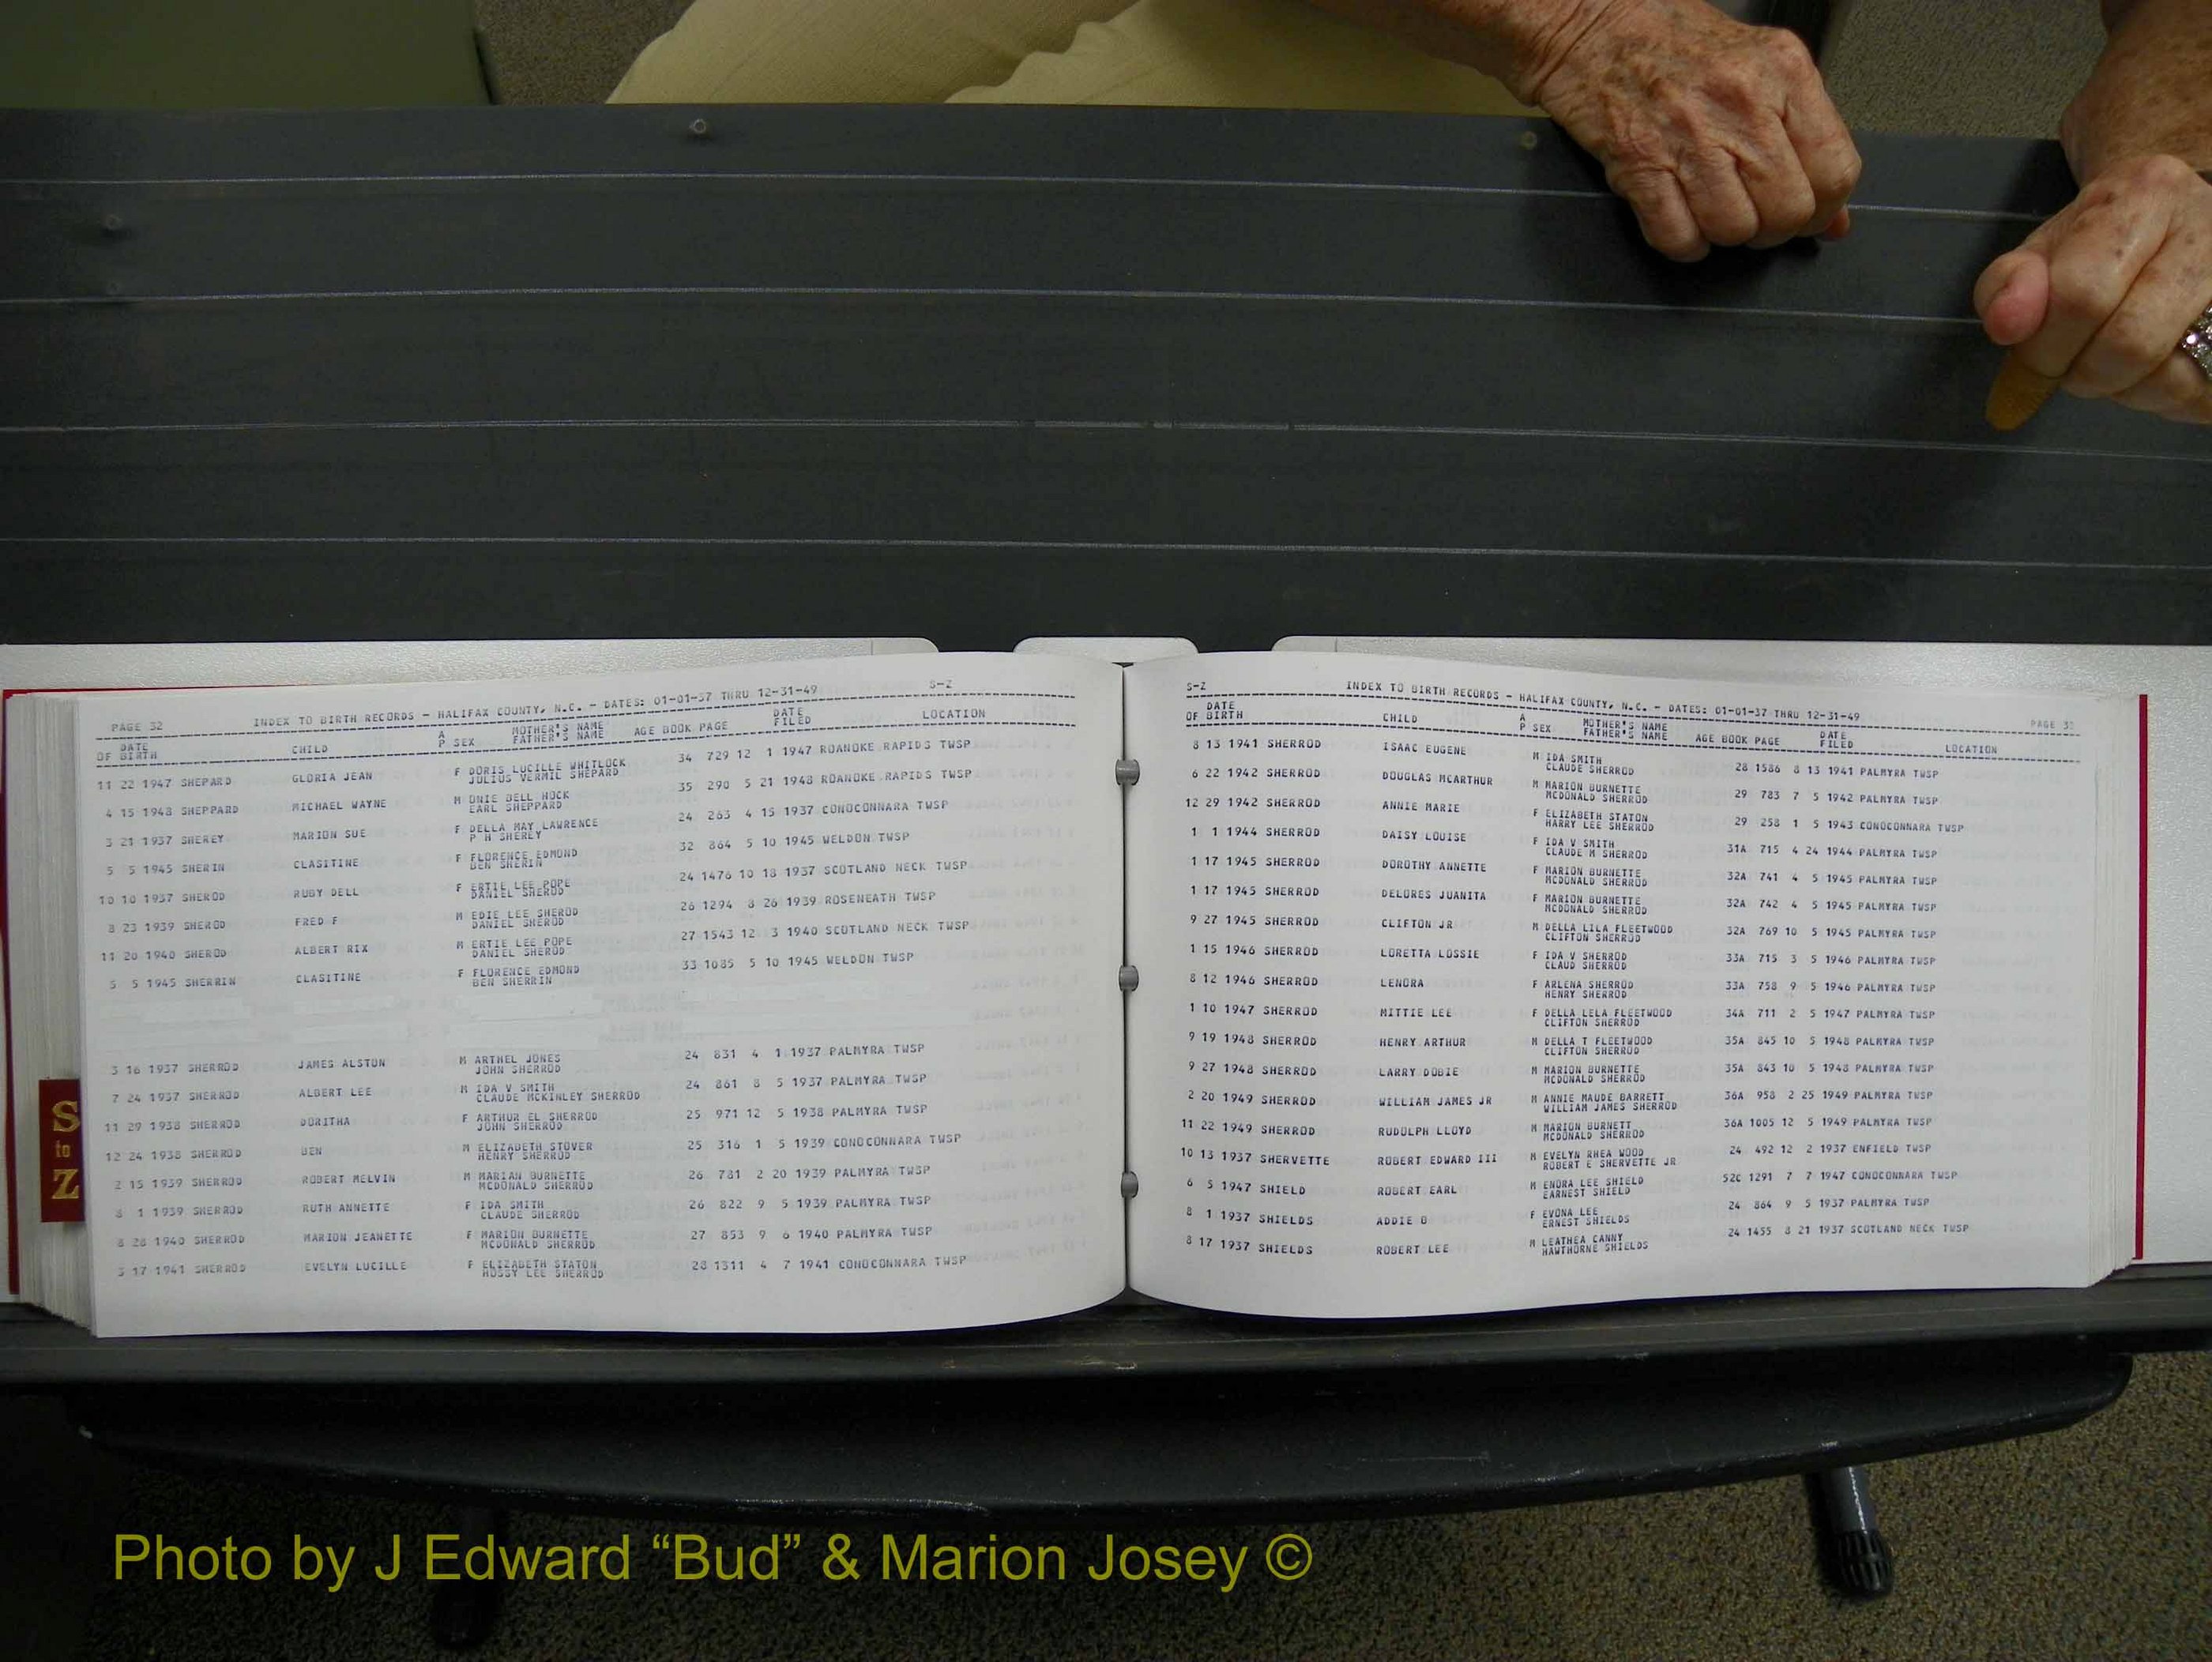 PAGE 32 INDEX TO BIRTH RECORDS - HALIFAX COUNTY, N.C. - DATES: 01-01-37 THRU 12-31-49 S-Z
DATE OF BIRTH CHILD A P SEX MOTHER'S NAME FATHER'S NAME AGE BOOK PAGE DATE FILED LOCATION
11 22 1947 SHEPARD GLORIA JEAN F DORIS LUCILLE WHITLOCK 34 729 12 1 1947 ROANOKE RAPIDS TWSP
JULIUS VERMIL SHEPARD
4 15 1948 SHEPPARD MICHAEL WAYNE M ONIE BELL HOCK 35 290 5 21 1948 ROANOKE RAPIDS TWSP
EARL SHEPPARD
3 21 1937 SHEREY MARION SUE F DELLA MAY LAWRENCE 24 263 4 15 1937 CONOCONNARA TWSP
P H SHERLY
5 5 1945 SHERIN CLASITINE F FLORENCE EDMOND 32 864 5 10 1945 WELDON TWSP
BEN SHERIN
10 10 1937 SHEROD RUBY DELL F ERTIE LEE POPE 24 1476 10 18 1937 SCOTLAND NECK TWSP
DANIEL SHEROD
8 23 1939 SHEROD FRED F M EDIE LEE SHEROD 26 1294 8 26 1939 ROSENEATH TWSP
DANIEL SHEROD
11 20 1940 SHEROD ALBERT RIX M ERTIE LEE POPE 27 1543 12 3 1940 SCOTLAND NECK TWSP
DANIEL SHEROD
5 5 1945 SHERRIN CLASITINE F FLORENCE EDMOND 33 1085 5 10 1945 WELDON TWSP
BEN SHERRIN
3 16 1937 SHERROD JAMES ALSTON M ARTHEL JONES 24 831 4 1 1937 PALMYRA TWSP
JOHN SHERROD
7 24 1937 SHERROD ALBERT LEE M IDA V SMITH 24 861 8 5 1937 PALMYRA TWSP
CLAUDE MCKINLEY SHERROD
11 29 1938 SHERROD DORITHA F ARTHUR EL SHERROD 25 971 12 5 1938 PALMYRA TWSP
JOHN SHERROD
12 24 1938 SHERROD BEN M ELIZABETH STOVER 25 316 1 5 1939 CONOCONNARA TWSP
HENRY SHERROD
2 15 1939 SHERROD ROBERT MELVIN M MARIAN BURNETTE 26 781 2 20 1939 PALMYRA TWSP
MCDONALD SHERROD
8 1 1939 SHERROD RUTH ANNETTE F IDA SMITH 26 822 9 5 1939 PALMYRA TWSP
CLAUDE SHERROD
8 28 1940 SHERROD MARION JEANETTE F MARION BURNETTE 27 853 9 6 1940 PALMYRA TWSP
MCDONALD SHERROD
3 17 1941 SHERROD EVELYN LUCILLE F ELIZABETH STATON 28 1311 4 7 1941 CONOCONNARA TWSP
HOSSY LEE SHERROD
S to Z
S-Z INDEX TO BIRTH RECORDS - HALIFAX COUNTY, N.C. - DATES: 01-01-37 THRU 12-31-49 PAGE
DATE OF BIRTH CHILD A P SEX MOTHER'S NAME FATHER'S NAME AGE BOOK PAGE DATE FILED LOCATION
8 13 1941 SHERROD ISAAC EUGENE M IDA SMITH 28 1586 8 13 1941 PALMYRA TWSP
CLAUDE SHERROD
6 22 1942 SHERROD DOUGLAS MCARTHUR M MARION BURNETTE 29 783 7 5 1942 PALMYRA TWSP
MCDONALD SHERROD
12 29 1942 SHERROD ANNIE MARIE F ELIZABETH STATON 29 258 1 5 1943 CONOCONNARA TWSP
HARRY LEE SHERROD
1 1 1944 SHERROD DAISY LOUISE F IDA V SMITH 31A 715 4 24 1944 PALMYRA TWSP
CLAUDE M SHERROD
1 17 1945 SHERROD DOROTHY ANNETTE F MARION BURNETTE 32A 741 4 5 1945 PALMYRA TWSP
MCDONALD SHERROD
1 17 1945 SHERROD DELORES JUANITA F MARION BURNETTE 32A 742 4 5 1945 PALMYRA TWSP
MCDONALD SHERROD
9 27 1945 SHERROD CLIFTON JR M DELLA LILA FLEETWOOD 32A 769 10 5 1945 PALMYRA TWSP
CLIFTON SHERROD
1 15 1946 SHERROD LORETTA LOSSIE F IDA V SHERROD 33A 715 3 5 1946 PALMYRA TWSP
CLAUD SHERROD
8 12 1946 SHERROD LENORA F ARLENA SHERROD 33A 758 9 5 1946 PALMYRA TWSP
HENRY SHERROD
1 10 1947 SHERROD MITTIE LEE F DELLA LELA FLEETWOOD 34A 711 2 5 1947 PALMYRA TWSP
CLIFTON SHERROD
9 19 1948 SHERROD HENRY ARTHUR M DELLA T FLEETWOOD 35A 845 10 5 1948 PALMYRA TWSP
CLIFTON SHERROD
9 27 1948 SHERROD LARRY DOBIE M MARION BURNETTE 35A 843 10 5 1948 PALMYRA TWSP
MCDONALD SHERROD
2 20 1949 SHERROD WILLIAM JAMES JR M ANNIE MAUDE BARRETT 36A 958 2 25 1949 PALMYRA TWSP
WILLIAM JAMES SHERROD
11 22 1949 SHERROD RUDOLPH LLOYD M MARION BURNETT 36A 1005 12 5 1949 PALMYRA TWSP
MCDONALD SHERROD
10 13 1937 SHERVETTE ROBERT EDWARD III M EVELYN RHEA WOOD 24 492 12 2 1937 ENFIELD TWSP
ROBERT E SHERVETTE JR
6 5 1947 SHIELD ROBERT EARL M ENORA LEE SHIELD 52C 1291 7 7 1947 CONOCONNARA TWSP
EARNEST SHIELD
8 1 1937 SHIELDS ADDIE F EVONA LEE 24 864 9 5 1937 PALMYRA TWSP
ERNEST SHIELDS
8 17 1937 SHIELDS ROBERT LEE M LEATHEA CANNY 24 1455 8 21 1937 SCOTLAND NECK TWSP
HAWTHORNE SHIELDS
Photo by J Edward “Bud” & Marion Josey ©